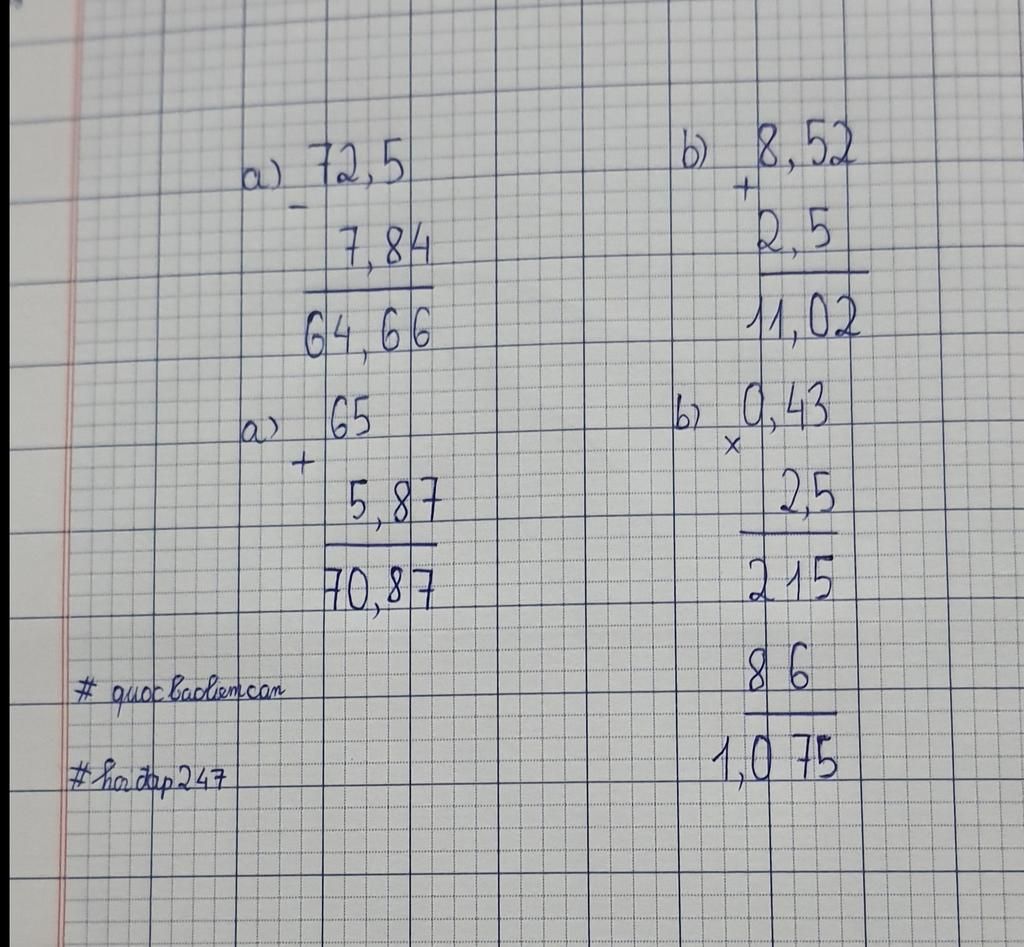 a) 72,5
-
7,84
64,66
b) 8,52
+
2,5
11,02
a) 65
+
5,87
70,87
b) 0,43
x
2,5
215
86
1,075
# quocbaoliemcan
#hoidap247